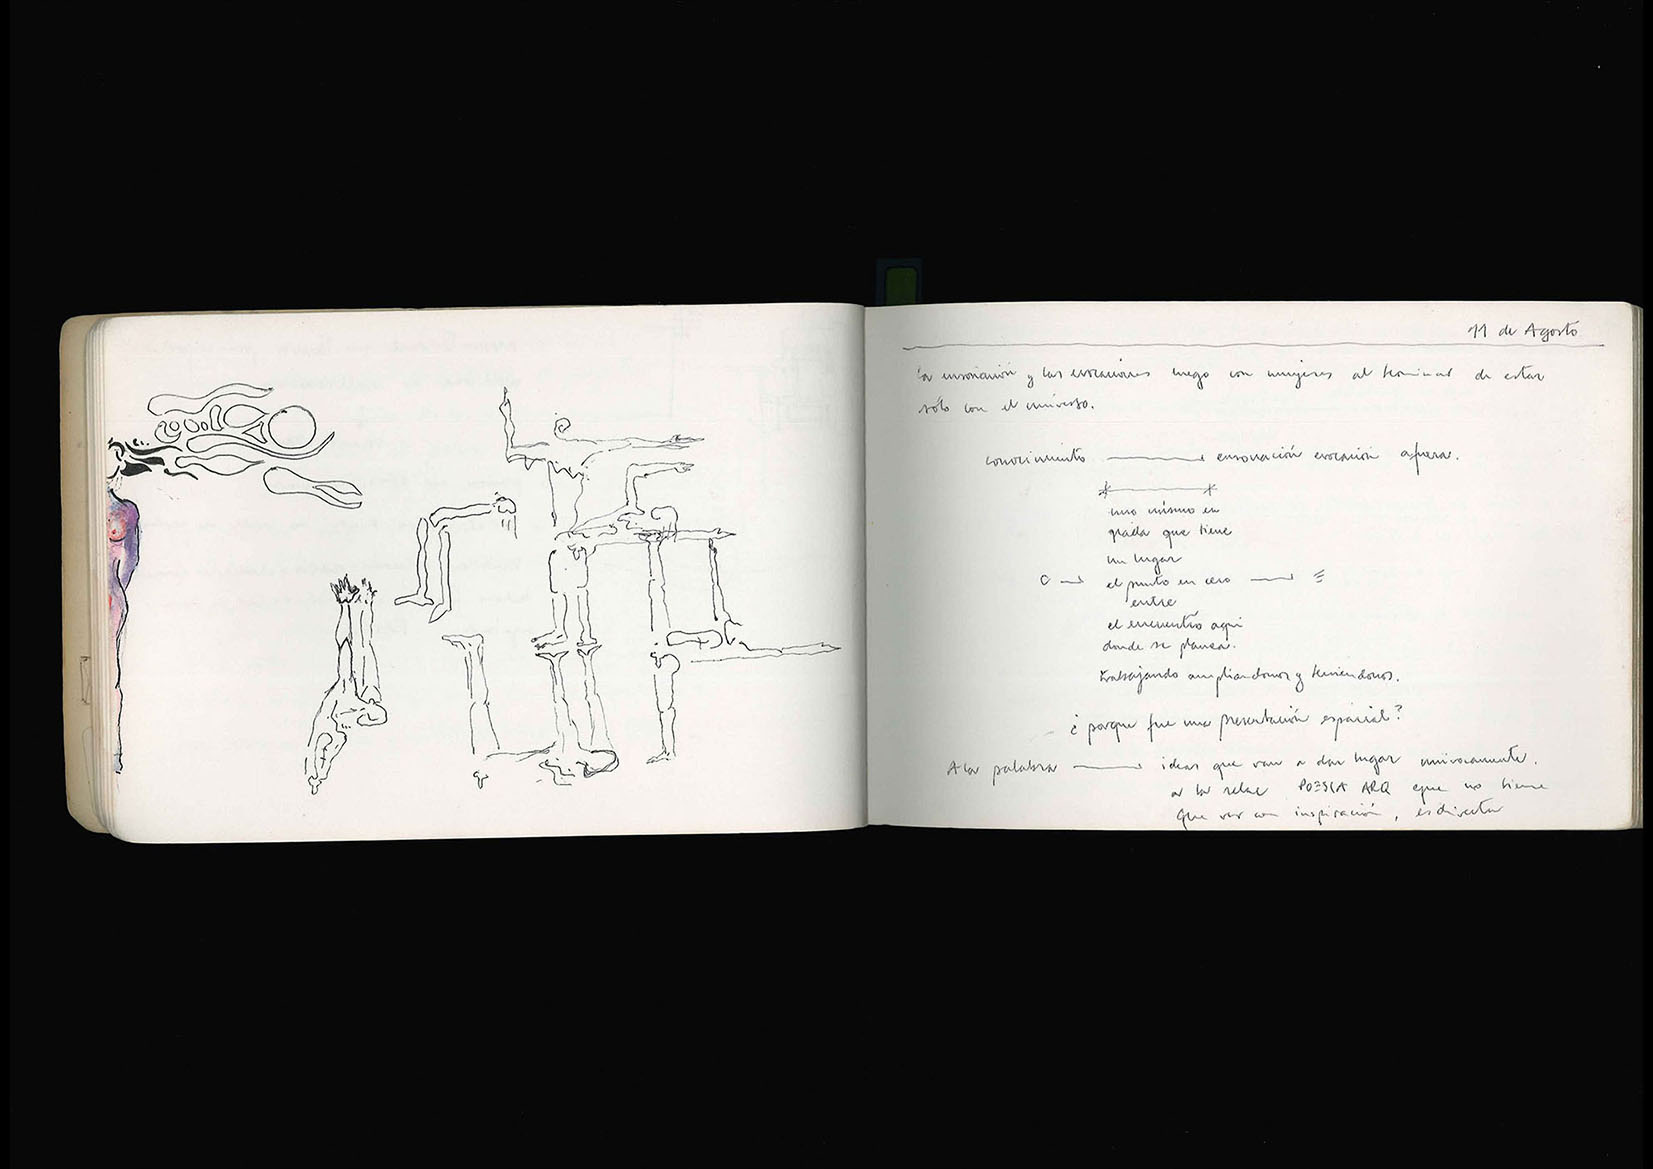 11 de Agosto
la ensoñación y las evocaciones luego con mujeres al terminar de estar
sólo con el universo.
conocimiento ensoñación evocación afuera.
uno mismo en
grada que tiene
un lugar
el punto en cero
entre
el encuentro aqui
donde se planea.
trabajando ampliandonos y teniendonos.
¿ porque fue una presentación espacial?
A la palabra ideas que van a dar lugar univocamente.
a la relac POESIA ARQ que no tiene
que ver con inspiración, es directa